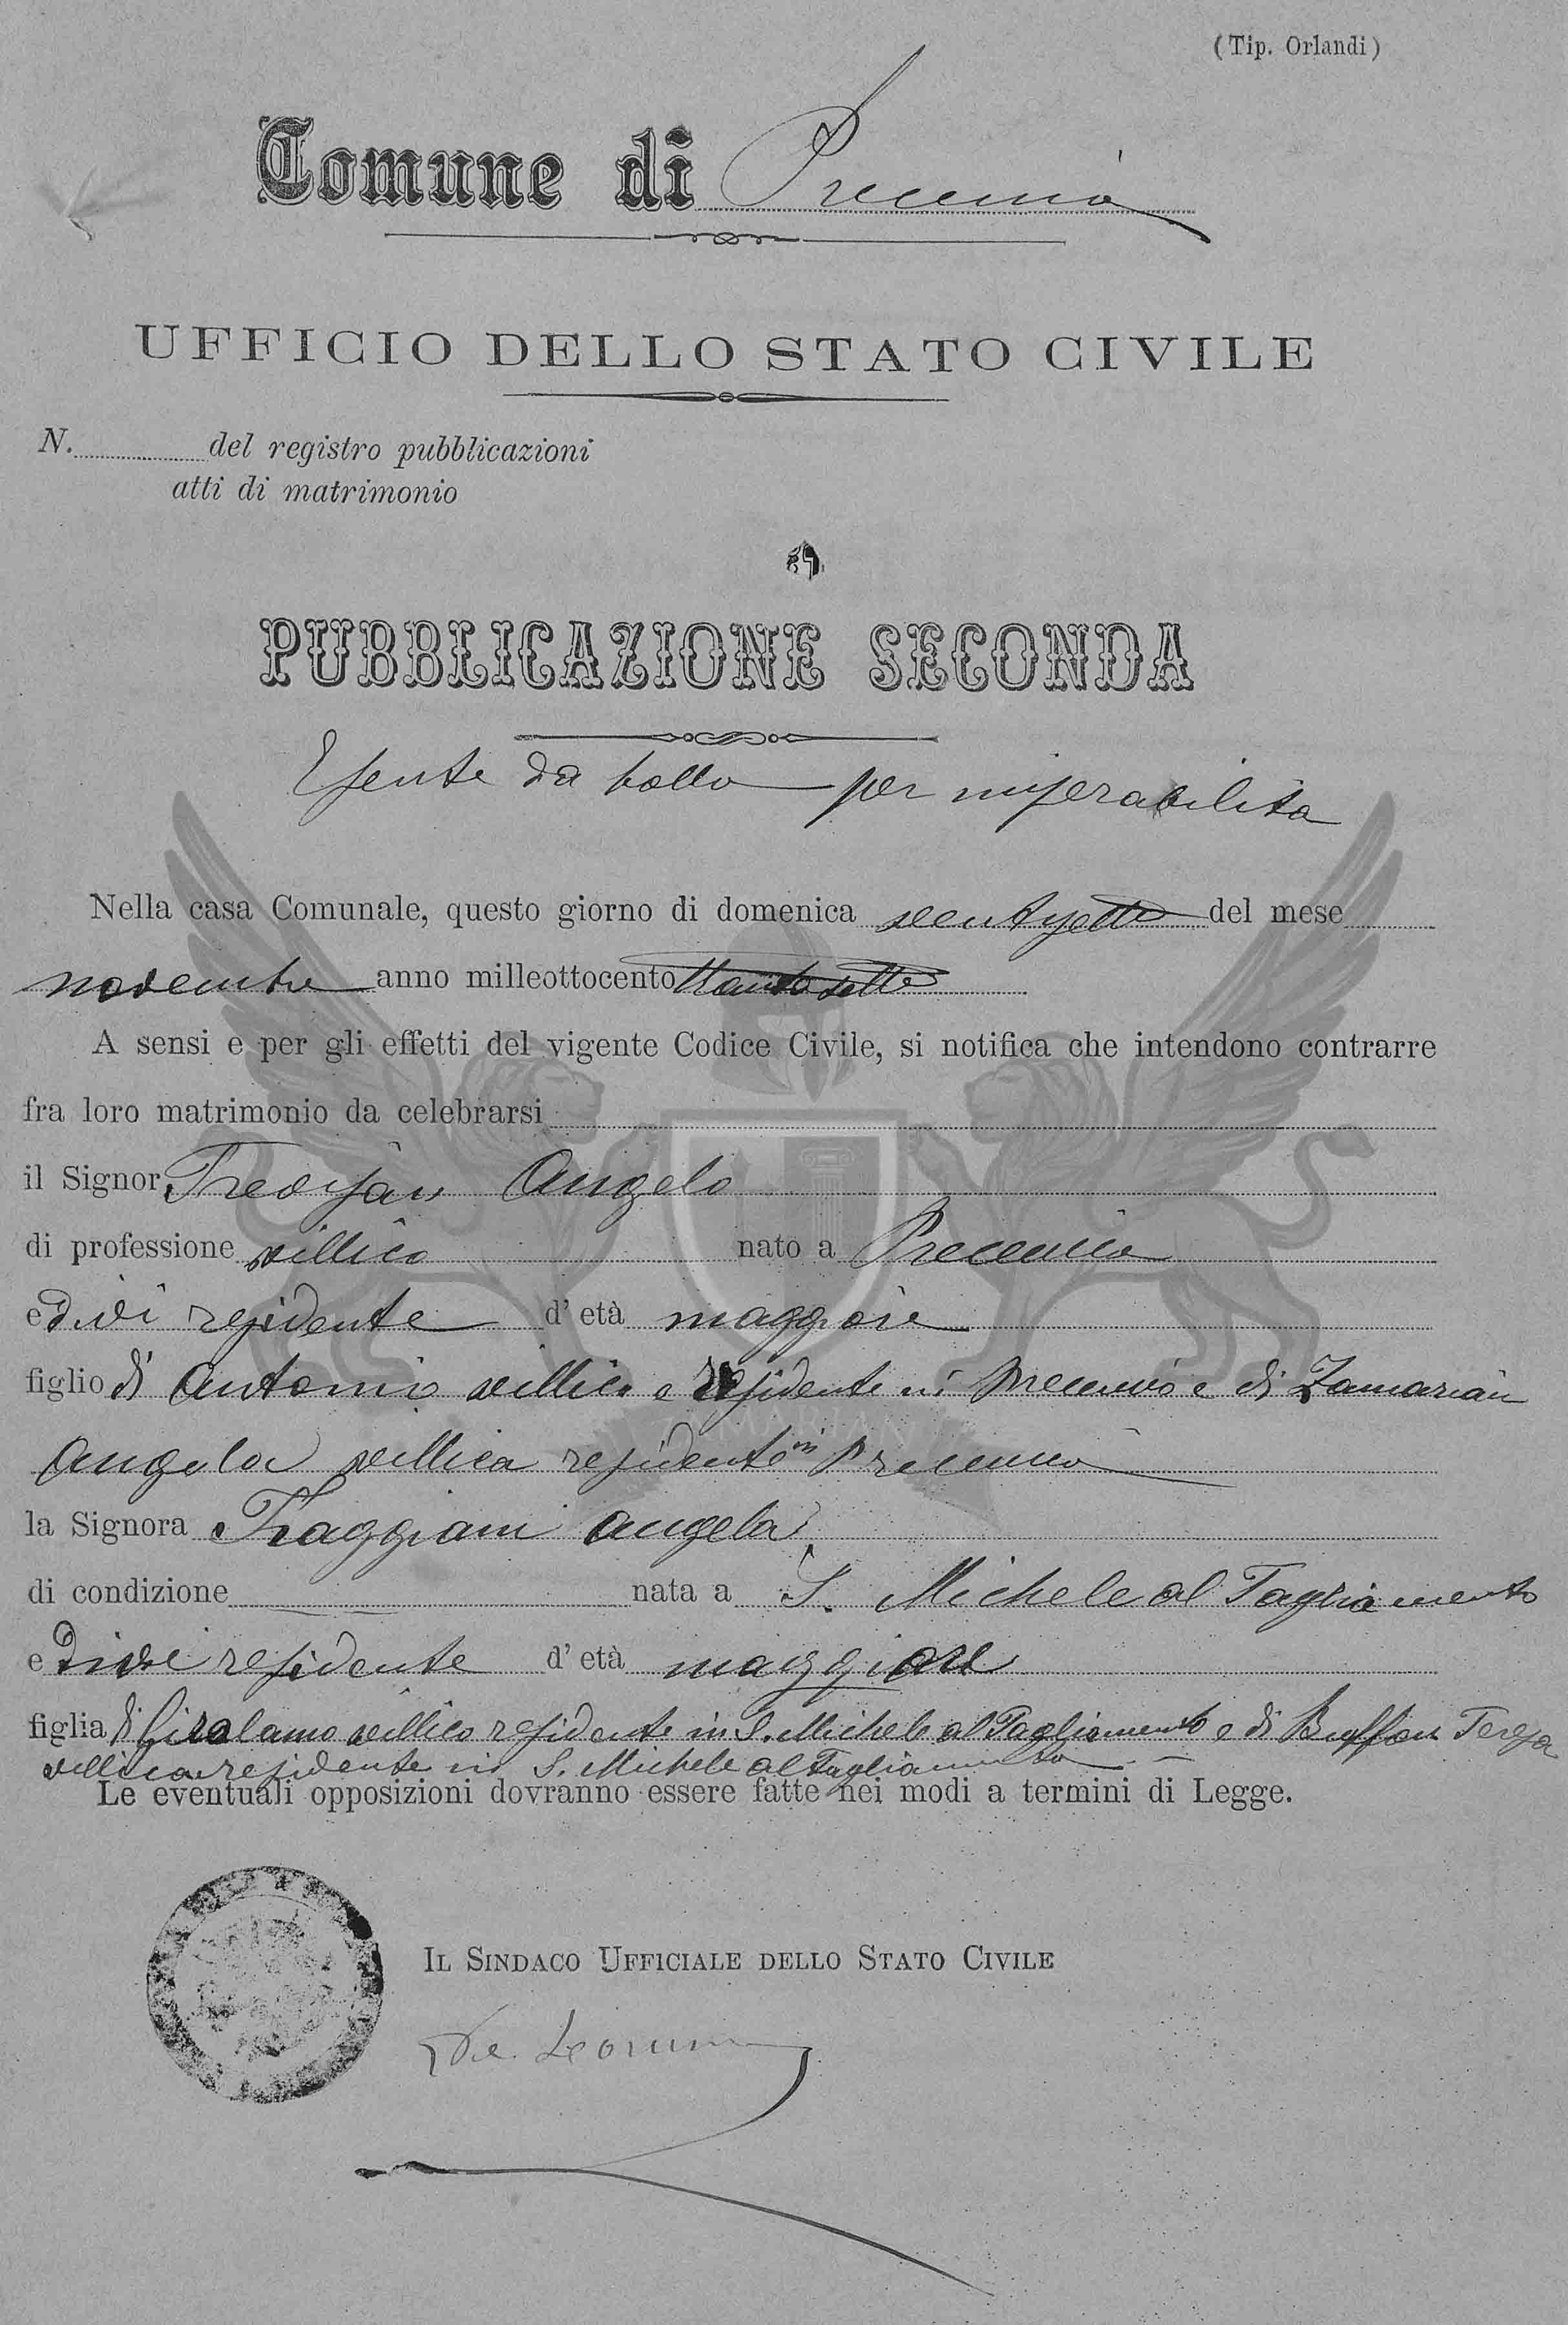 (Tip. Orlandi)
Comune di Precenico
UFFICIO DELLO STATO CIVILE
N. del registro pubblicazioni
atti di matrimonio
PUBBLICAZIONE SECONDA
Esente da bollo per miserabilità
Nella casa Comunale, questo giorno di domenica ventisette del mese
novembre anno milleottocento ottantasette
A sensi e per gli effetti del vigente Codice Civile, si notifica che intendono contrarre
fra loro matrimonio da celebrarsi
il Signor Trevisan Angelo
di professione villico nato a Precenico
ed ivi residente d' età maggiore
figlio di Antonio villico e residente in Precenico e di Zamarian
Angela villica residente in Precenico
la Signora Fraggiani Angela
di condizione nata a S. Michele al Tagliamento
e d'ivi residente d' età maggiore
figlia di Girolamo villico residente in S. Michele al Tagliamento e di Buffon Teresa
villica residente in S. Michele al Tagliamento
Le eventuali opposizioni dovranno essere fatte nei modi a termini di Legge.
IL SINDACO UFFICIALE DELLO STATO CIVILE